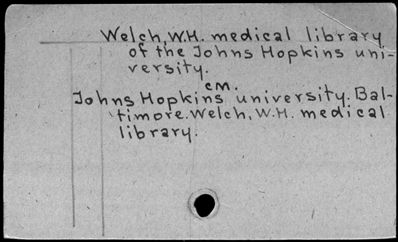 Welch, W.H. medical library
of the Johns Hopkins uni-
versity.
cm.
Johns Hopkins university. Bal-
timore. Welch, W.H. medical
library.